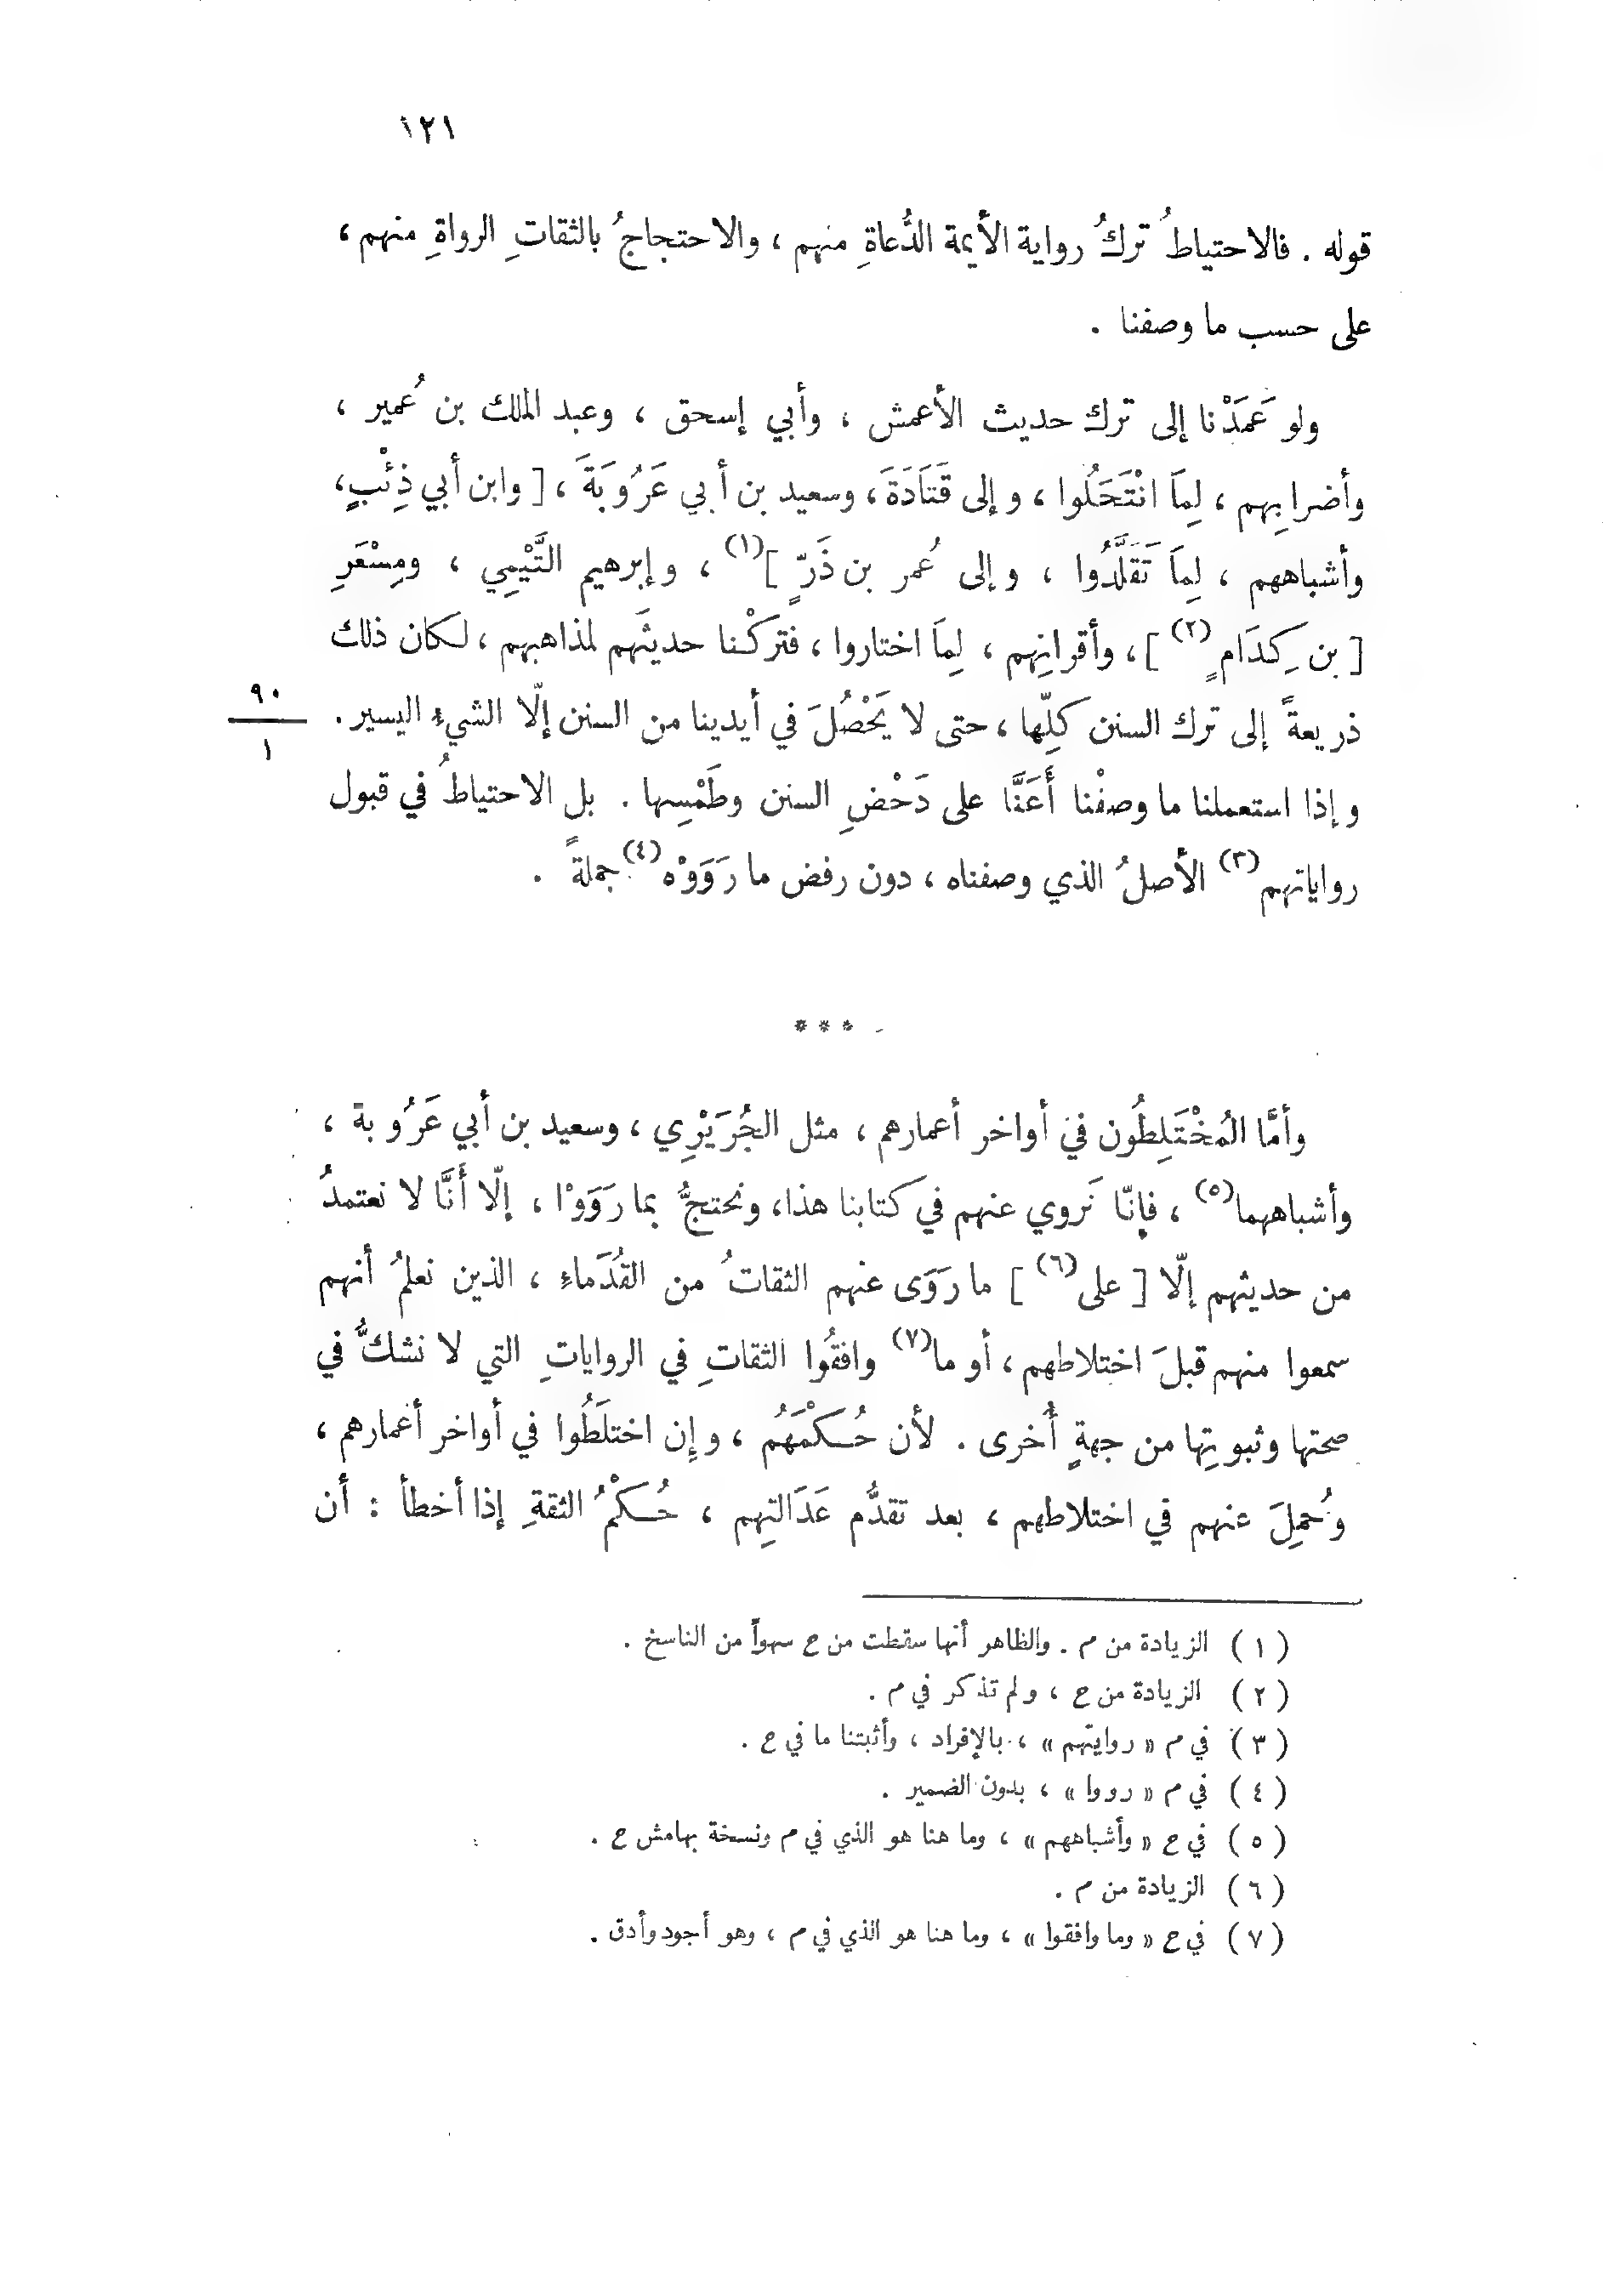 ١٢١
قوله . فالاحتياطُ تركُ رواية الأيمة الدُّعاةِ منهم ، والاحتجاجُ بالثقاتِ الرواةِ منهم ،
على حسب ما وصفنا .
ولو عَمَدْنا إلى ترك حديث الأعمش ، وأبي إسحق ، وعبد الملك بن عُمير ،
وأضرابِهم ، لِمَا انْتَحَلُوا ، وإلى قَتَادَةَ ، وسعيد بن أبي عَرُوبَةَ ، [ وابن أبي ذِئْبٍ ،
وأشباههم ، لِمَا تَقَلَّدُوا ، وإلى عُمر بن ذَرّ ٍ ](١) ، وإبرهيم التَّيْمِي ، ومِسْعَرِ
[ بن كِدَام ٍ(٢) ] ، وأقرانِهم ، لِمَا اختاروا ، فتركْنا حديثَهم لمذاهبهم ، لكان ذلك
ذريعةً إلى ترك السنن كلِّها ، حتى لا يَحْصُلَ في أيدينا من السنن إلّا الشيءِ اليسير .
٩٠
١
وإذا استعملنا ما وصفْنا أَعَنَّا على دَحْضِ السنن وطَمْسِها . بل الاحتياطُ في قبول
رواياتهم(٣) الأصلُ الذي وصفناه ، دون رفض ما رَوَوْه(٤) جملةً .
* * *
وأمَّا المُخْتَلِطُون في أواخر أعمارهم ، مثل الجُرَيْرِي ، وسعيد بن أبي عَرُوبة ،
وأشباههما(٥) ، فإنّا نَروي عنهم في كتابنا هذا ، ونحتجُّ بما رَوَوْا ، إلّا أَنَّا لا نعتمدُ
من حديثهم إلّا [ على(٦) ] ما رَوَى عنهم الثقاتُ من القُدَماءِ ، الذين نعلمُ أنهم
سمعوا منهم قبلَ اختلاطهم ، أو ما(٧) وافقُوا الثقاتِ في الرواياتِ التي لا نشكُّ في
صحتها وثبوتِها من جهةٍ أُخرى . لأن حُكْمَهُم ، وإن اختلَطُوا في أواخر أعمارهم ،
وحُمِلَ عنهم في اختلاطهم ، بعد تقدُّم عَدَالتِهم ، حُكْمُ الثقةِ إذا أخطأ : أن
( ١ ) الزيادة من م . والظاهر أنها سقطت من ح سهواً من الناسخ .
( ٢ ) الزيادة من ح ، ولم تذكر في م .
( ٣ ) في م « روايتهم » ، بالإفراد ، وأثبتنا ما في ح .
( ٤ ) في م « رووا » ، بدون الضمير .
( ٥ ) في ح « وأشباههم » ، وما هنا هو الذي في م ونسخة بهامش ح .
( ٦ ) الزيادة من م .
( ٧ ) في ح « وما وافقوا » ، وما هنا هو الذي في م ، وهو أجود وأدق .